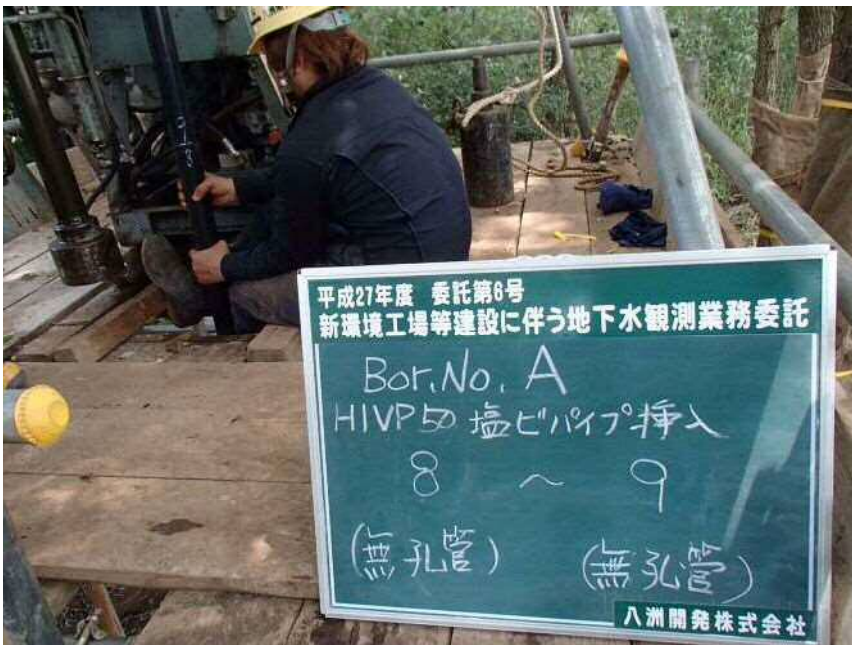 平成27年度 委託第6号
新環境工場等建設に伴う地下水観測業務委託
Bor.No. A
HIVP50 塩ビパイプ挿入
8 ~ 9
(無孔管) (無孔管)
八洲開発株式会社